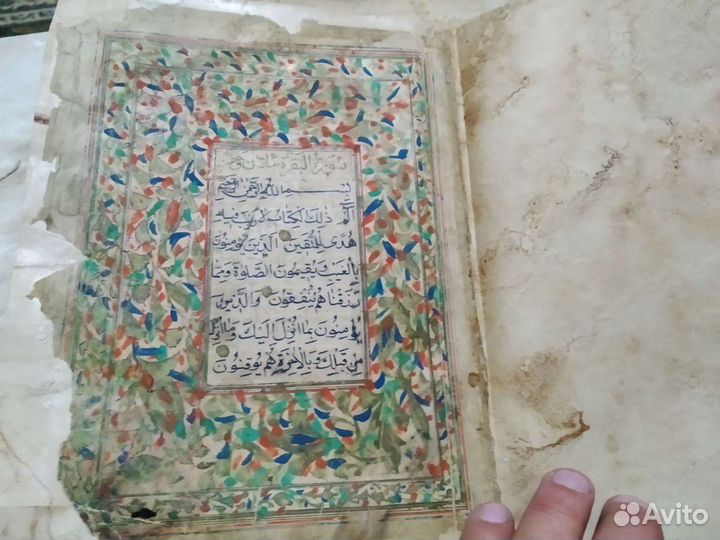 سورة البقرة مائتان و
بسم الله الرحمن الرحيم
الم ذلك الكتاب لا ريب فيه
هدى للمتقين الذين يؤمنون
بالغيب و يقيمون الصلوة ومما
رزقناهم ينفقون والذين
يؤمنون بما انزل اليك وما انزل
من قبلك و بالاخرة هم يوقنون
Avito